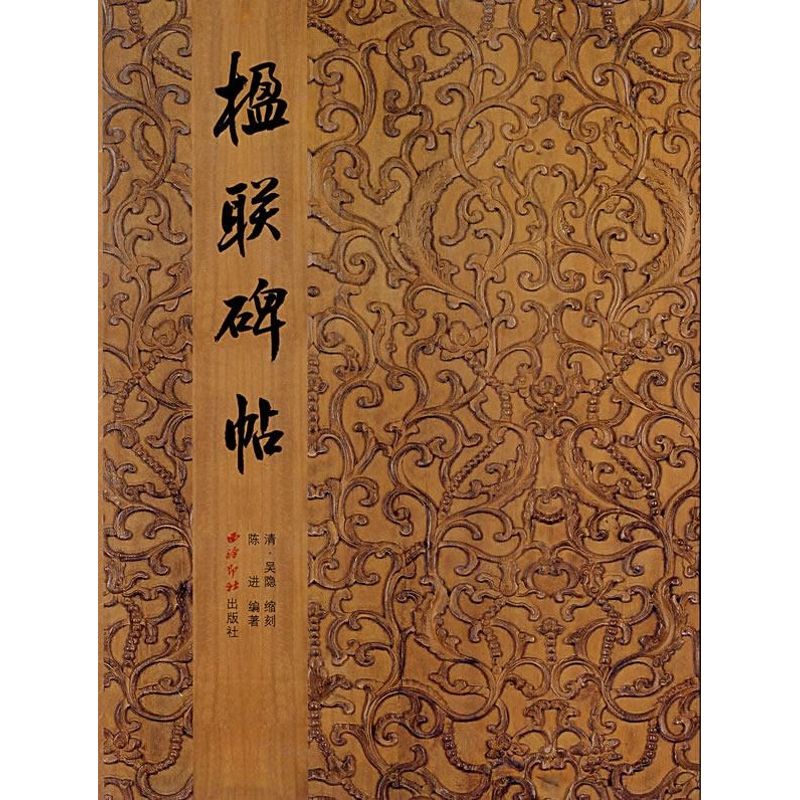 楹联碑帖
清·吴隐 缩刻
陈进 编著
西泠印社出版社